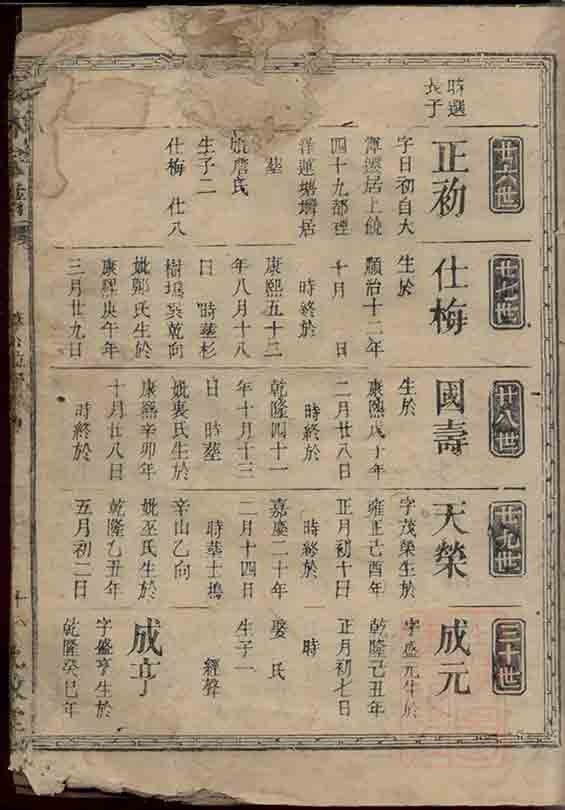 時選
長子
廿六世
正初
字日初自大
潭遷居上饒
四十九都裡
洋蓮塘墈居
墓
妣詹氏
生子二
仕梅 仕八
廿七世
仕梅
生於
順治十二年
十月 日
時終於
康熙五十三
年八月十八
日 時葬杉
樹塢巽乾向
妣鄭氏生於
康熙庚午年
三月廿九日
廿八世
國壽
生於
康熙戊子年
二月廿八日
時終於
乾隆四十一
年十月十三
日 時葬
妣裴氏生於
康熙辛卯年
十月廿八日
時終於
廿九世
天榮
字茂榮生於
雍正己酉年
正月初十日
時終於
嘉慶二十年
二月十四日
時葬士塢
辛山乙向
妣巫氏生於
乾隆乙丑年
五月初二日
三十世
成元
字盛元生於
乾隆己丑年
正月初七日
時
娶 氏
生子一
經聲
成亨
字盛亨生於
乾隆癸巳年